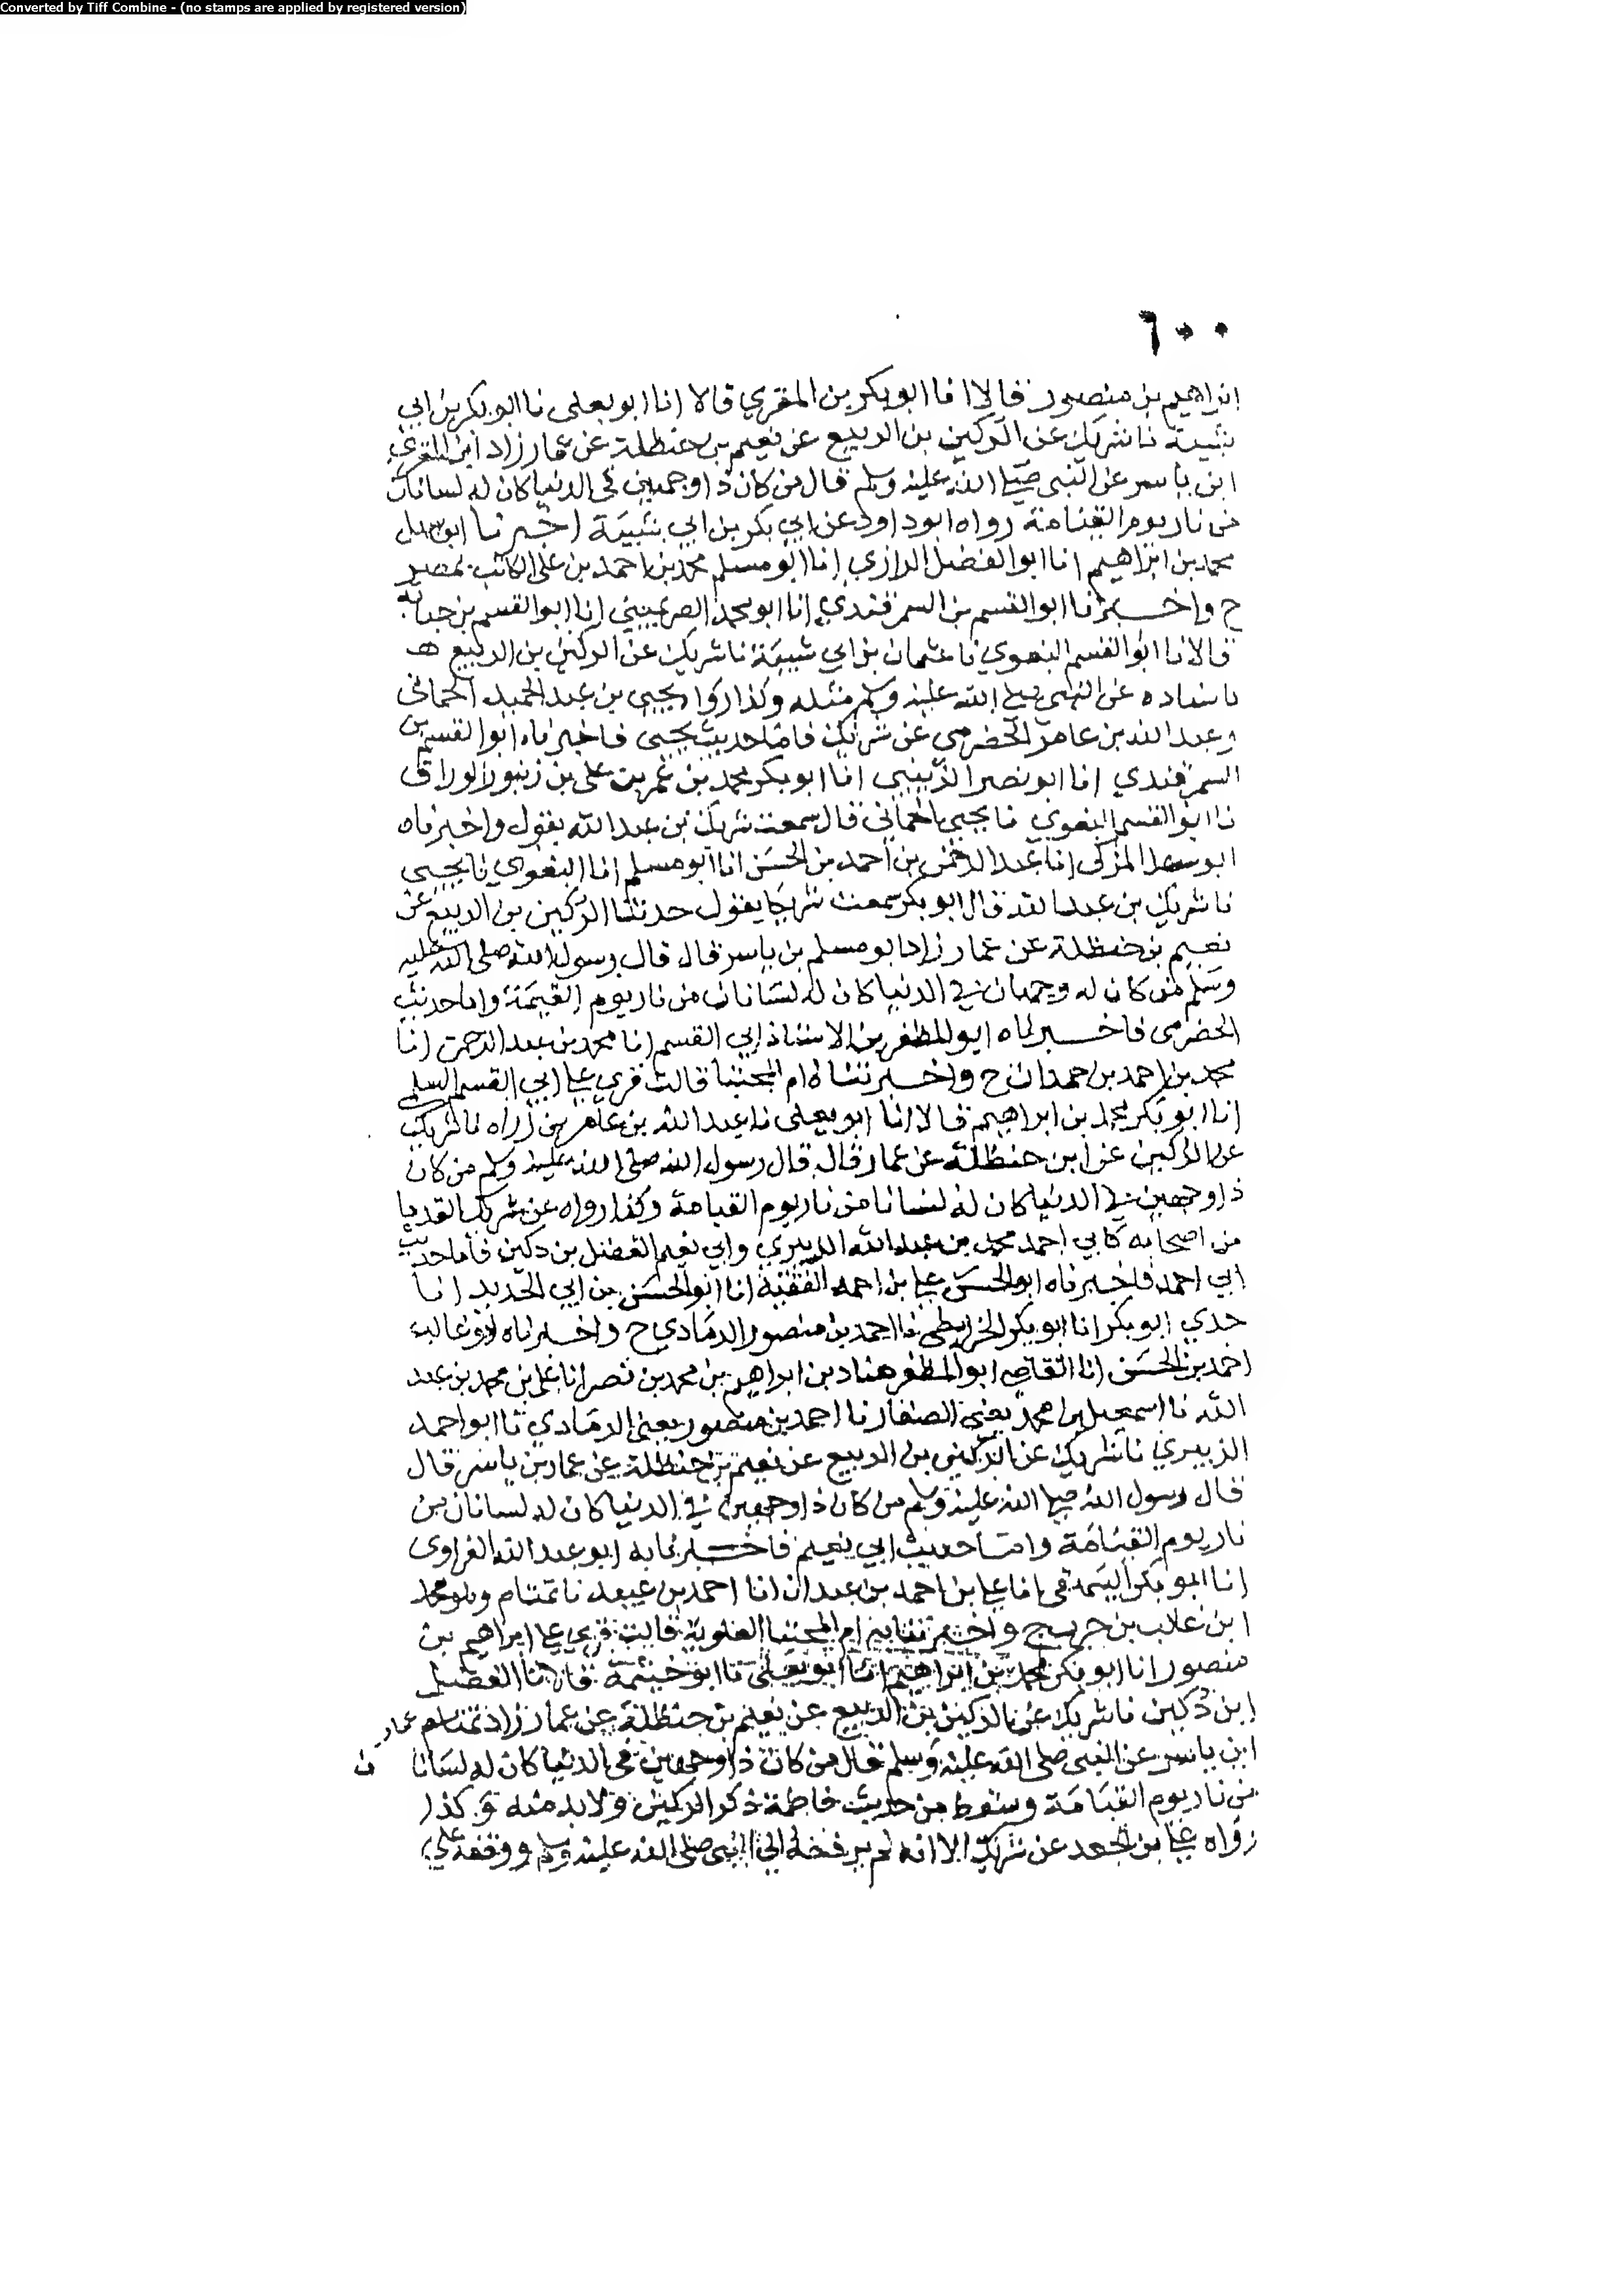 Converted by Tiff Combine - (no stamps are applied by registered version)
٦٠٠
ابراهيم بن منصور قالا انا ابو بكر بن المقري قالا انا ابو يعلى نا ابو بكر بن ابي
شيبة نا شريك عن الركين بن الربيع عن نعيم بن حنظلة عن عمار زاد ابن المقري
ابن ياسر عن النبي صلى الله عليه وسلم قال من كان ذا وجهين في الدنيا كان له لسانان
من نار يوم القيامة رواه ابو داود عن ابي بكر بن ابي شيبة اخبرنا ابو سهل
محمد بن ابراهيم انا ابو الفضل الرازي انا ابو مسلم محمد بن احمد بن علي الكاتب بمصر
ح واخبرنا ابو القسم بن السمرقندي انا ابو محمد الصريفيني انا ابو القسم بن حبابه
قالا نا ابو القسم البغوي نا عثمان بن ابي شيبة نا شريك عن الركين بن الربيع
باسناده عن النبي صلى الله عليه وسلم مثله وكذا رواه يحيى بن عبد الحميد الحماني
وعبد الله بن عامر الحضرمي عن شريك فاما حديث يحيى فاخبرناه ابو القسم بن
السمرقندي انا ابو نصر الزينبي انا ابو بكر محمد بن عمر بن علي بن زنبور الوراق
نا ابو القسم البغوي نا يحيى الحماني قال سمعت شريك بن عبد الله يقول واخبرناه
ابو سعد المزكى انا عبد الرحمن بن احمد بن الحسن انا ابو مسلم انا البغوي نا يحيى
نا شريك بن عبد الله قال ابو بكر سمعت شريكا يقول حدثنا الركين بن الربيع عن
نعيم بن حنظلة عن عمار زاد ابو مسلم بن ياسر قال قال رسول الله صلى الله عليه
وسلم من كان له وجهان في الدنيا كان له لسانان من نار يوم القيمة واما حديث
الحضرمي فاخبرناه ابو المظفر بن الاستاذ ابي القسم انا محمد بن عبد الرحمن انا
محمد بن احمد بن حمدان ح واخبرتناه ام المجتبا قالت قري علي ابي القسم السلمي
انا ابو بكر محمد بن ابراهيم قالا انا ابو يعلى نا عبد الله بن عامر بن زراه نا شريك
عن الركين عن ابن حنظلة عن عمار قال قال رسول الله صلى الله عليه وسلم من كان
ذا وجهين في الدنيا كان له لسانا من نار يوم القيامة وكذا رواه عن شريك القدما
من اصحابه كابي احمد محمد بن عبد الله الزبيري وابي نعيم الفضل بن دكين فاما حديث
ابي احمد فاخبرناه ابو الحسن علي بن احمد الفقيه انا ابو الحسن بن ابي الحديد انا
جدي ابو بكر انا ابو بكر الخرايطي نا احمد بن منصور الرمادي ح واخبرناه ابو غالب
احمد بن الحسن انا القاضي ابو المظفر هناد بن ابراهيم بن محمد بن نصر انا علي بن محمد بن عبد
الله نا اسمعيل بن محمد يعني الصفار نا احمد بن منصور يعني الرمادي نا ابو احمد
الزبيري نا شريك عن الركين بن الربيع عن نعيم بن حنظلة عن عمار بن ياسر قال
قال رسول الله صلى الله عليه وسلم من كان ذا وجهين في الدنيا كان له لسانان من
نار يوم القيامة واما حديث ابي نعيم فاخبرنا به ابو عبد الله الفراوى
انا ابو بكر البيهقي انا علي بن احمد بن عبدان انا احمد بن عبيد نا تمتام وهو محمد
ابن غالب بن حرب ح واخبرتنا به ام المجتبا العلوية قالت قري علي ابراهيم بن
منصور انا ابو بكر محمد بن ابراهيم انا ابو يعلى نا ابو خيثمة قالا نا الفضل
ابن دكين نا شريك عن الركين بن الربيع عن نعيم بن حنظلة عن عمار زاد تمتام عمار
ابن ياسر عن النبي صلى الله عليه وسلم قال من كان ذا وجهين في الدنيا كان له لسانا ن
من نار يوم القيامة وسقط من حديث فاطمة ذكر الركين ولا بد منه وكذا
رواه علي بن الجعد عن شريك الا انه لم يرفعه الى النبي صلى الله عليه وسلم ووقفه على